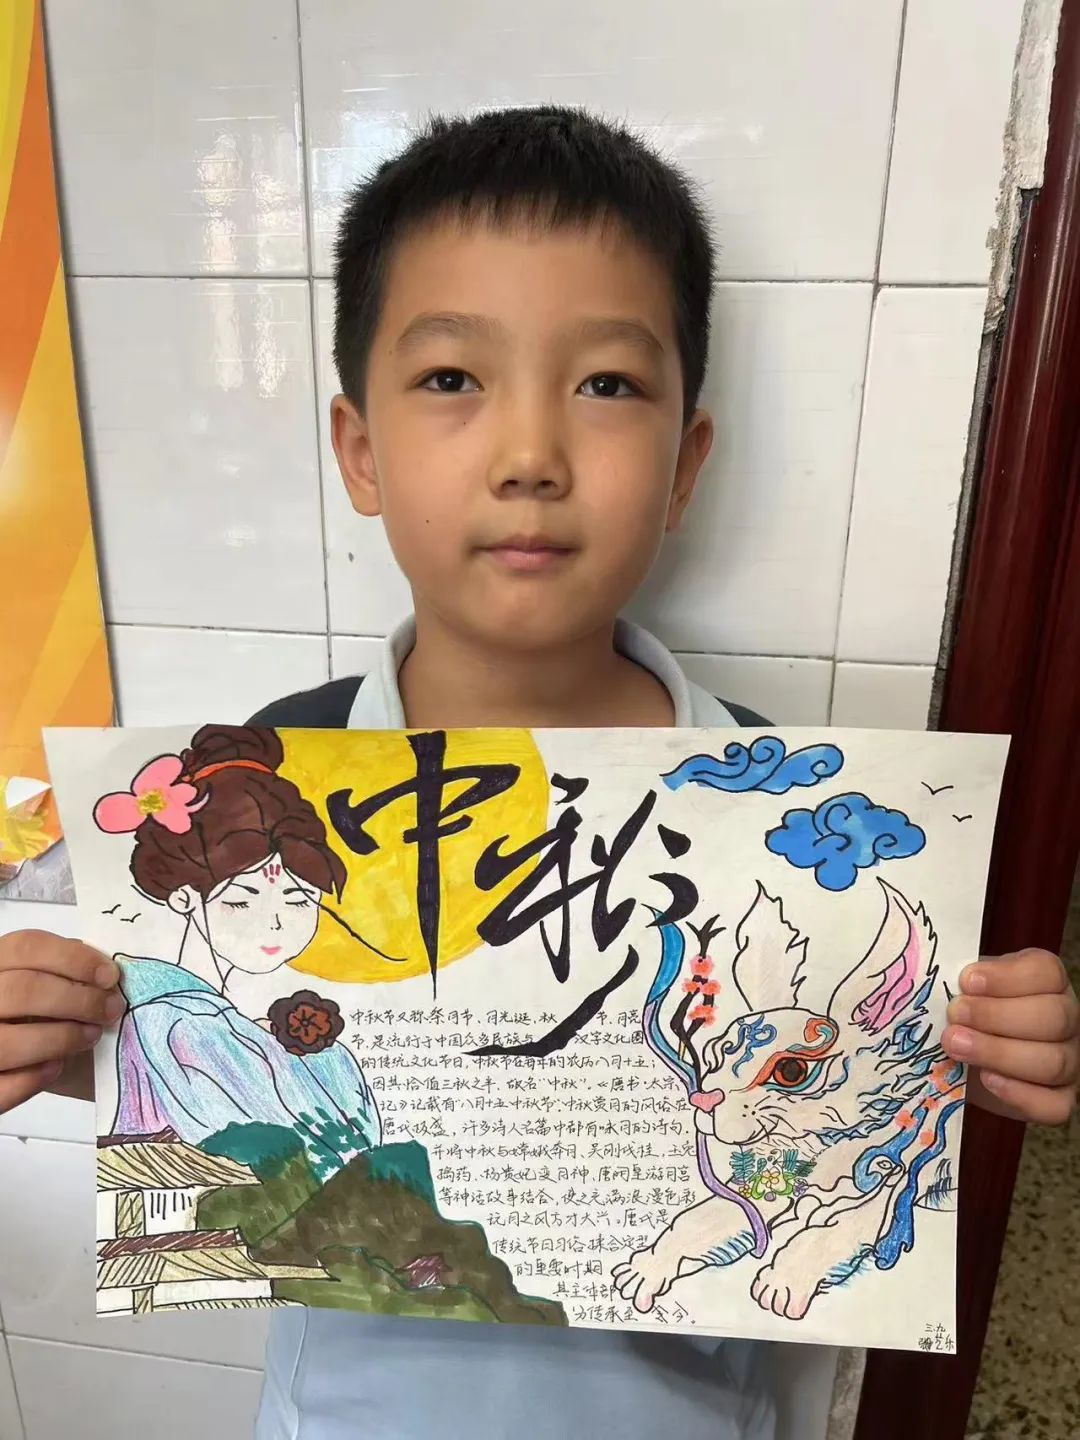 中秋
中秋节又称祭月节、月光诞、秋节、月亮
节,是流行于中国众多民族与汉字文化圈
的传统文化节日,中秋节在每年的农历八月十五;
因其恰值三秋之半,故名“中秋”。《唐书·太宗
记》记载有“八月十五中秋节”,中秋赏月的风俗在
唐代极盛,许多诗人名篇中都有咏月的诗句,
并将中秋与嫦娥奔月、吴刚伐桂、玉兔
捣药、杨贵妃变月神、唐明皇游月宫
等神话故事结合,使之充满浪漫色彩
玩月之风方才大兴。唐代是
传统节日习俗揉合定型
的重要时期
其主体部
分传承至今。
三.九
艺乐